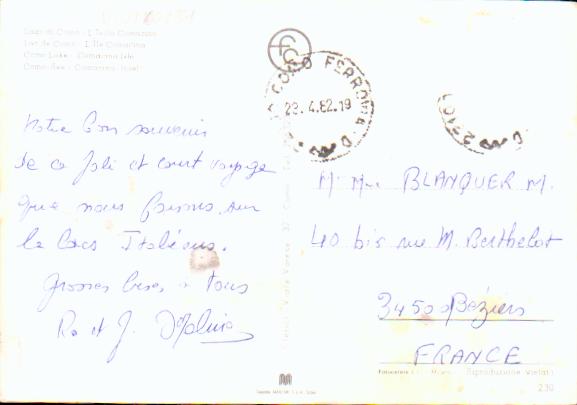 Lago di Como - L'Isola Comacina
Lac de Côme - L'Ile Comacina
Como Lake - Comacina Isle
Comer See - Comacina Insel
COMO FERROVIA
28.4.82.19
Notre bon souvenir
de ce joli et court voyage
que nous faisons sur
les lacs Italiens.
Grosses bises à tous
Ro et J.
M. Mme BLANQUER M.
40 bis rue M. Berthelot
34500 Béziers
FRANCE
Riproduzione Vietata
230